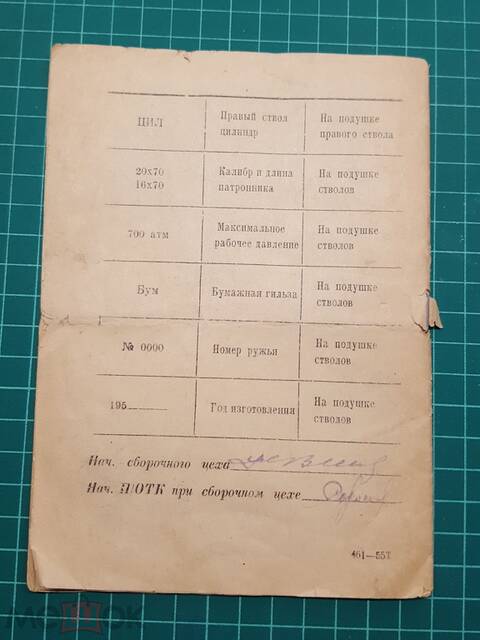 ЦИЛ Правый ствол На подушке
цилиндр правого ствола
20х70 Калибр и длина На подушке
16х70 патронника стволов
700 атм Максимальное На подушке
рабочее давление стволов
Бум Бумажная гильза На подушке
стволов
№ 0000 Номер ружья На подушке
стволов
195 Год изготовления На подушке
стволов
Нач. сборочного цеха
Нач. П/ОТК при сборочном цехе
461—55Т
МЕШОК